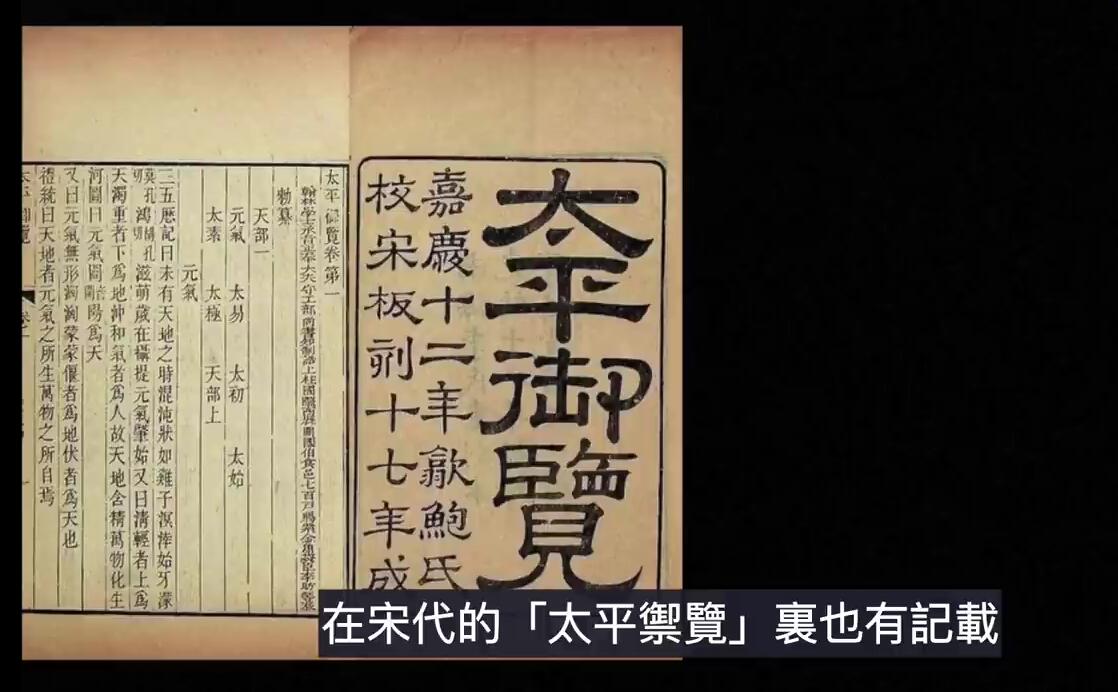 太平御覽
嘉慶十二年歙鮑氏
校宋板刻十七年成
太平御覽卷第一
翰林學士承旨正奉大夫守工部尚書知制誥上柱國隴西縣開國伯食邑七百戶賜紫金魚袋臣李昉等奉
勅纂
天部一
元氣 太易 太初 太始
太素 太極 天部上
元氣
三五厤記曰未有天地之時混沌狀如雞子溟涬始牙濛
莫孔切鴻胡孔切滋萌歲在攝提元氣肇始又曰清輕者上爲
天濁重者下爲地沖和氣者爲人故天地含精萬物化生
河圖曰元氣闓陽爲天
又曰元氣無形洶洶蒙蒙偃者爲地伏者爲天也
禮統曰天地者元氣之所生萬物之所自焉
在宋代的「太平禦覽」裏也有記載